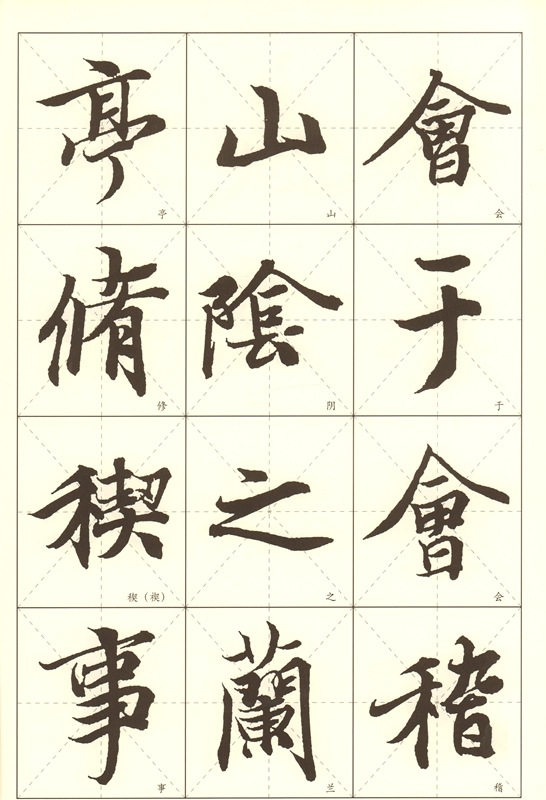 會于會稽
会于会稽
山陰之蘭
山阴之兰
亭脩稧事
亭修稧（禊）事